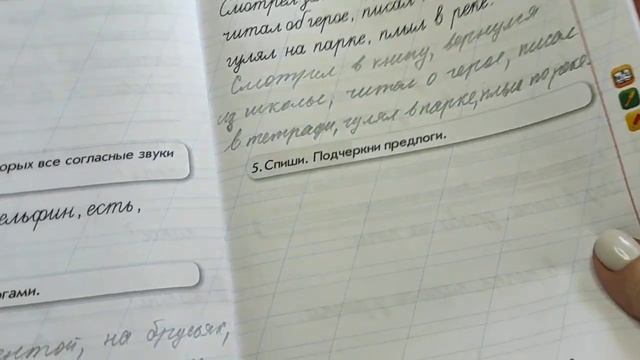 Смотрел
читал об герое, писал
гулял на парке, плыл в реке.
Смотрел в книгу, вернулся
из школы, читал о герое, писал
в тетради, гулял в парке, плыл по реке.
5. Спиши. Подчеркни предлоги.
орых все согласные звуки
ельфин, есть,
огами.
ентой, на брусьях,